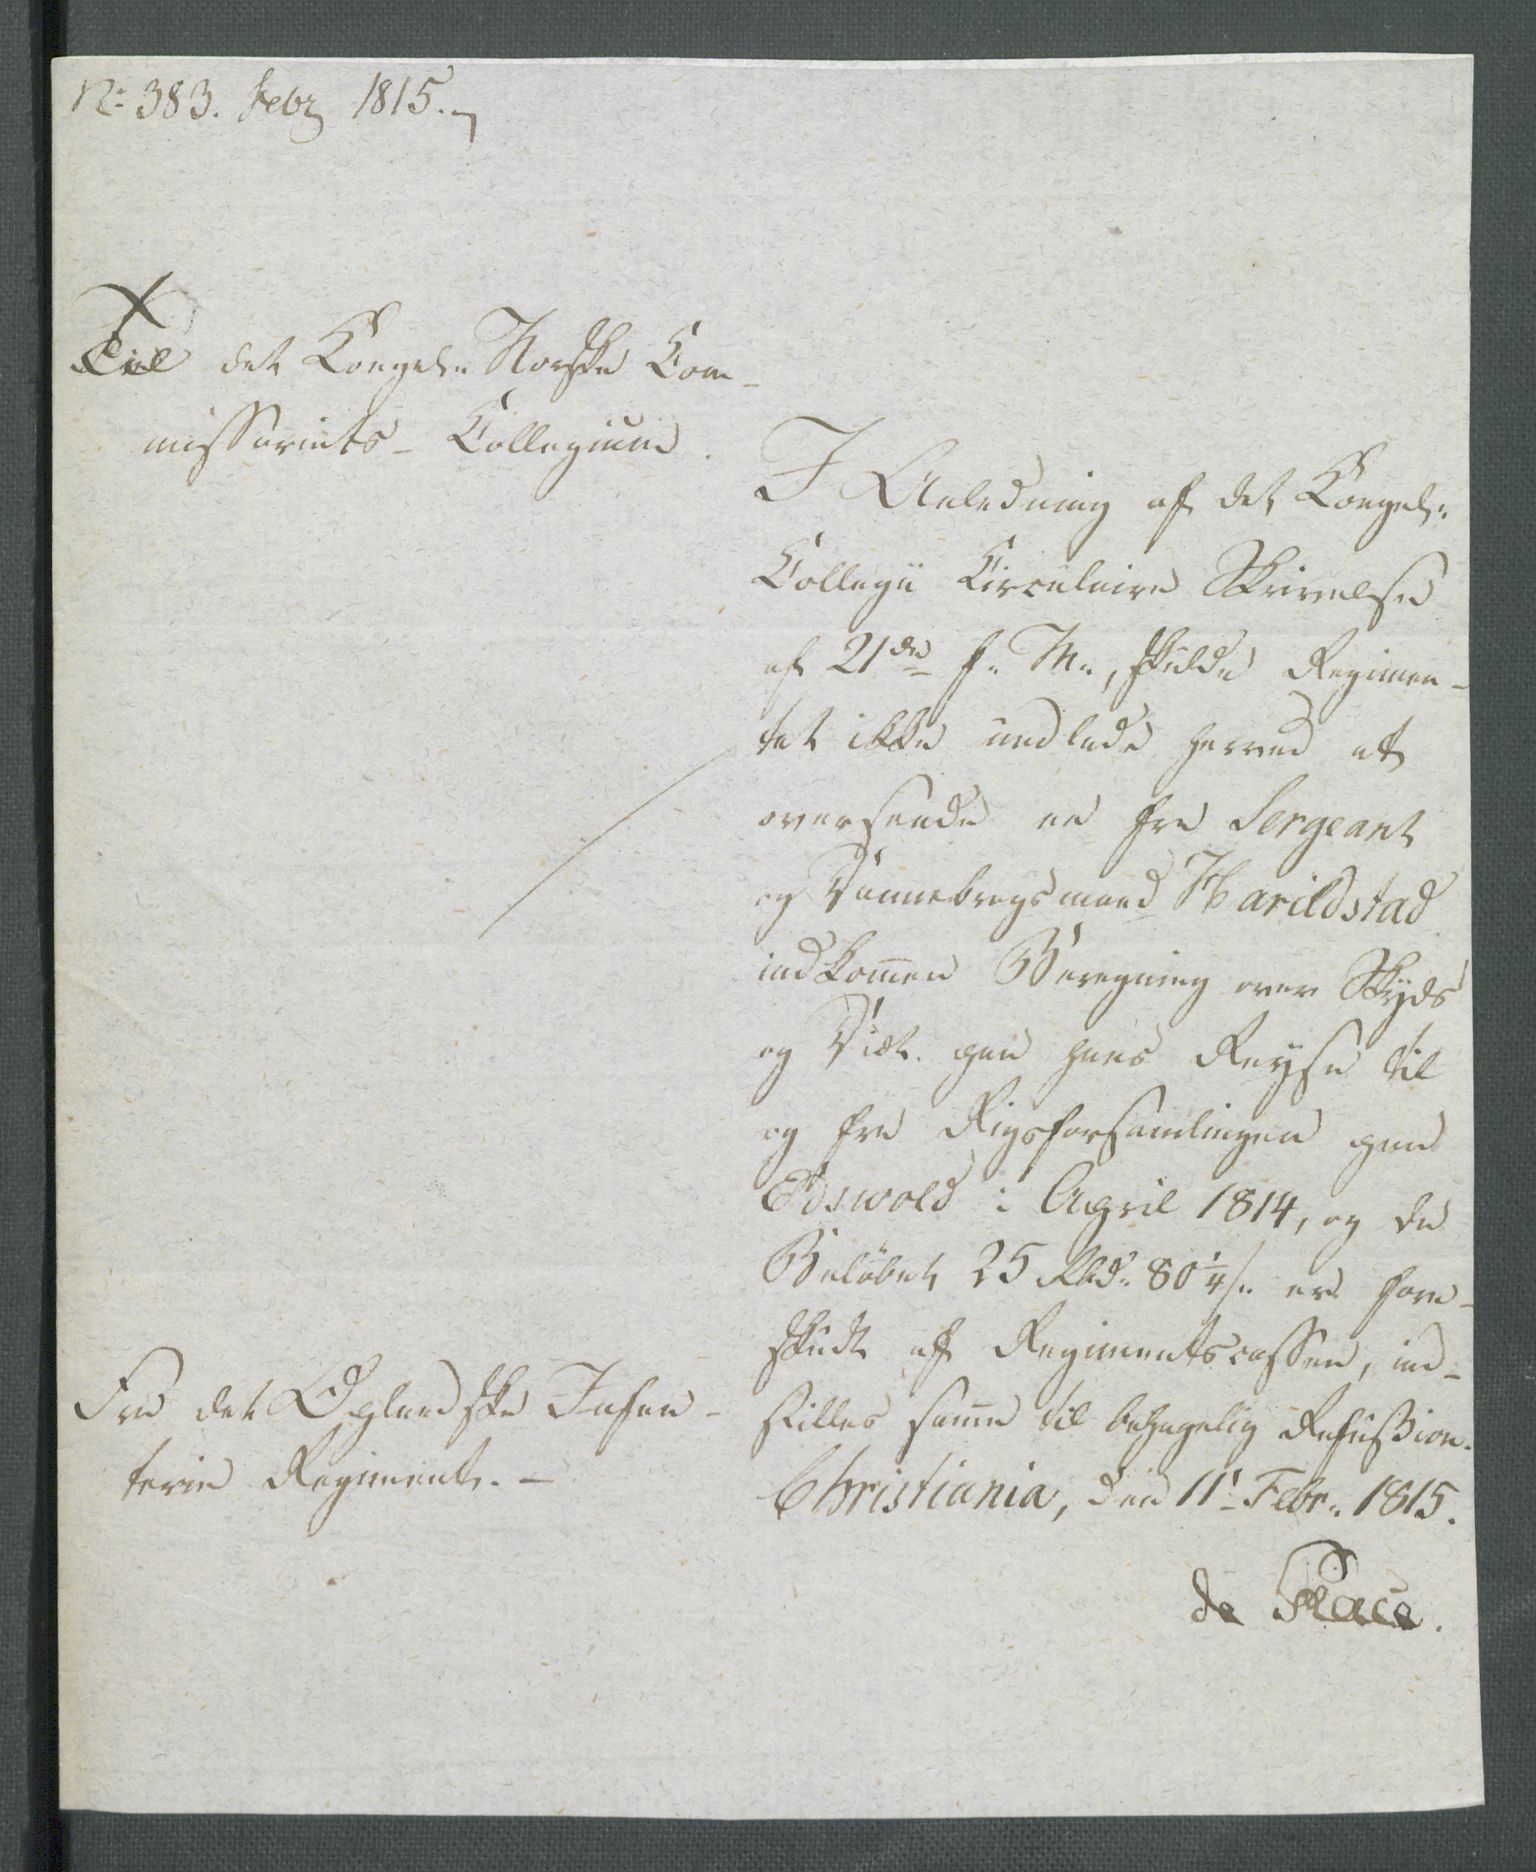 No 383. Febr 1815.
Til det Kongel. Norske Com-
missariats-Collegium.
I Anledning af det Kongel.
Collegii Circulaire Skrivelse
af 21de f. M., skulde Regimen-
tet ikke undlade herved at
oversende en fra Sergeant
og Dannebrogsmand Harildstad
indkommen Beregning over Skyds
og Diæt. paa hans Reyse til
og fra Rigsforsamlingen paa
Edswold i April 1814, og da
Beløbet 25 Rbd. 80 1/4 s. er fore-
skudt af Regimentscassen, ind-
stilles samme til behagelig Refusion.
Christiania, den 11t Febr. 1815.
de Place.
Fra det Oplandske Infan-
terie Regiment. -